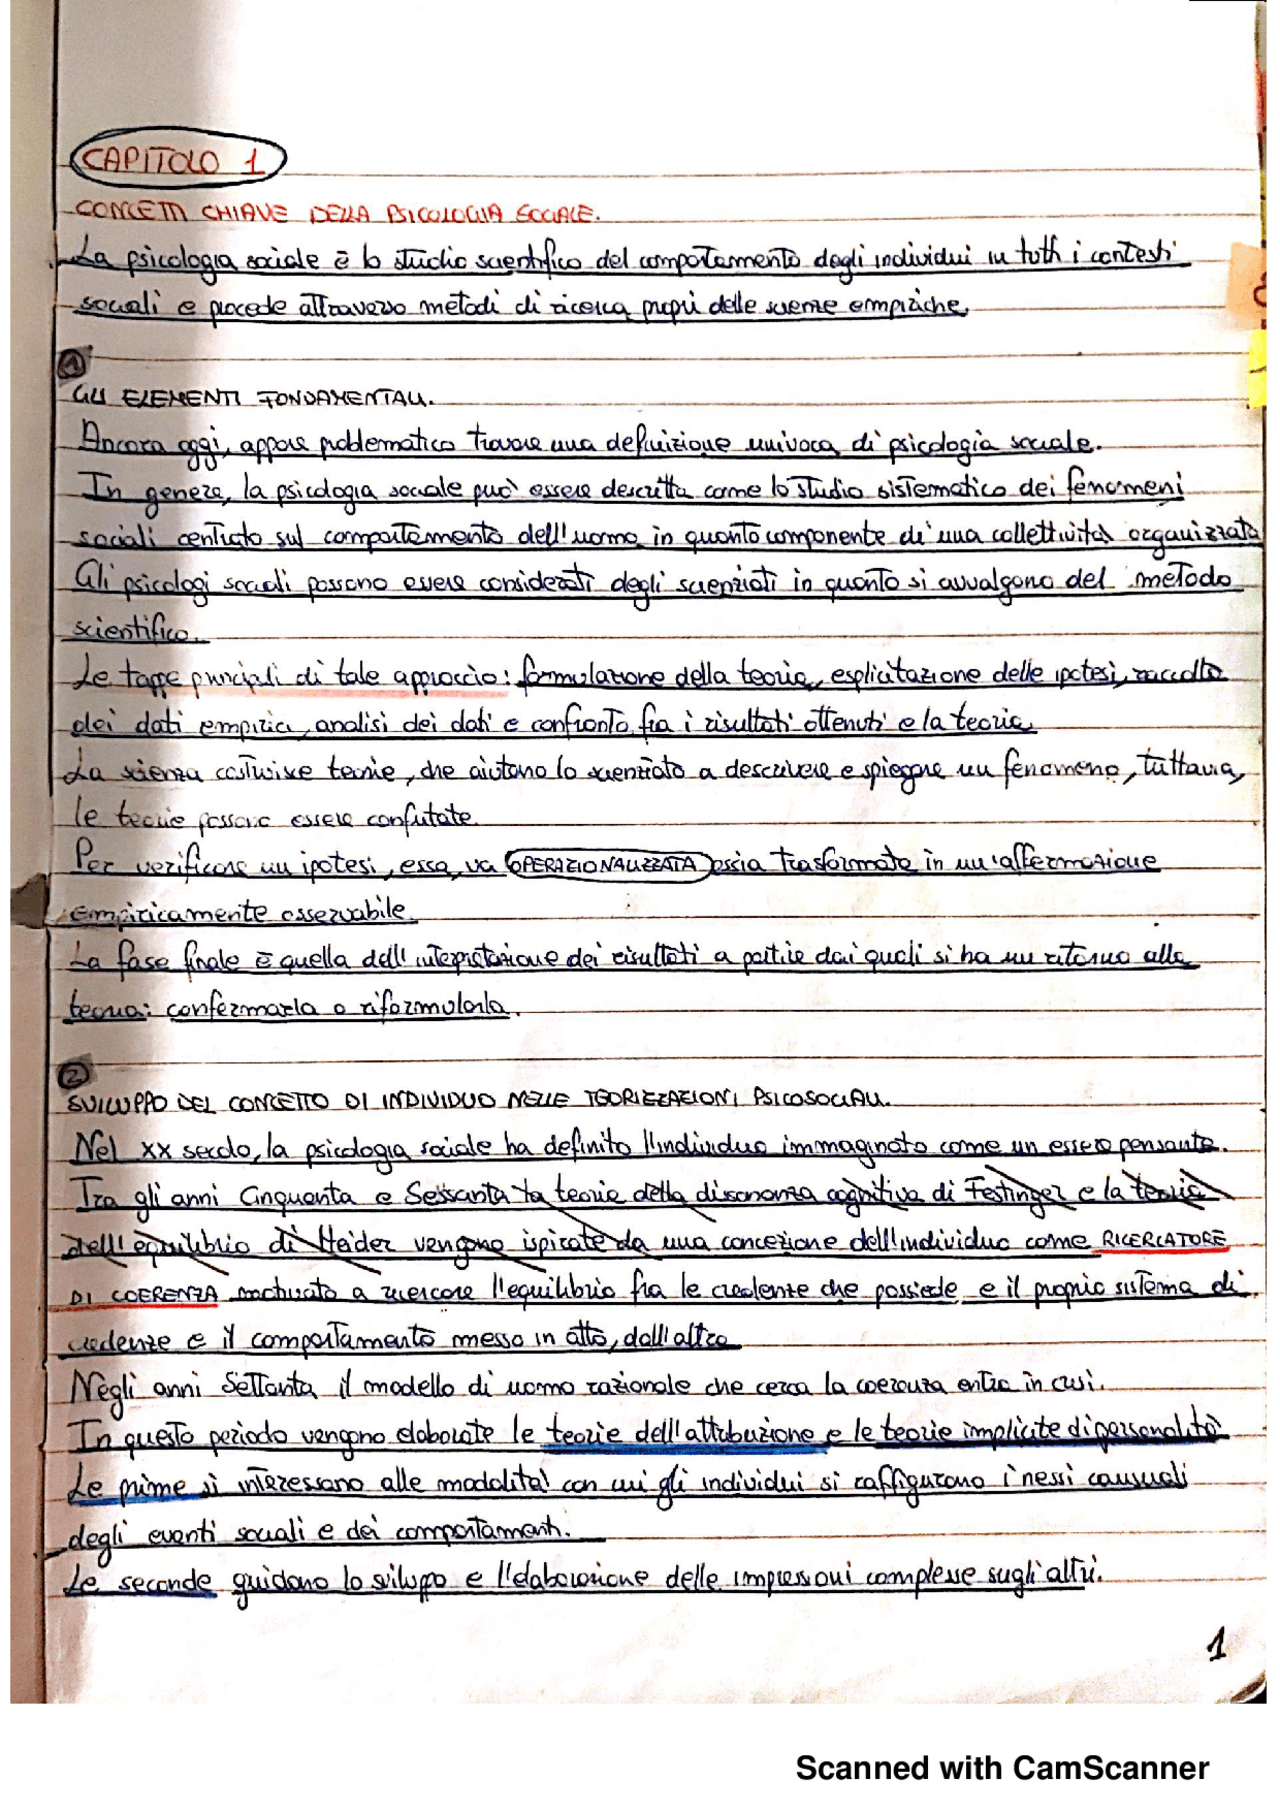 CAPITOLO 1
CONCETTI CHIAVE DELLA PSICOLOGIA SOCIALE.
La psicologia sociale è lo studio scientifico del comportamento degli individui in tutti i contesti
sociali e procede attraverso metodi di ricerca propri delle scienze empiriche.
1
GLI ELEMENTI FONDAMENTALI.
Ancora oggi, appare problematico trovare una definizione univoca di psicologia sociale.
In genere, la psicologia sociale può essere descritta come lo studio sistematico dei fenomeni
sociali centrato sul comportamento dell'uomo in quanto componente di una collettività organizzata
Gli psicologi sociali possono essere considerati degli scienziati in quanto si avvalgono del metodo
scientifico.
Le tappe principali di tale approccio: formulazione della teoria, esplicitazione delle ipotesi, raccolta
dei dati empirici, analisi dei dati e confronto fra i risultati ottenuti e la teoria.
La scienza costruisce teorie, che aiutano lo scienziato a descrivere e spiegare un fenomeno, tuttavia,
le teorie possono essere confutate.
Per verificare un ipotesi, essa, va OPERAZIONALIZZATA ossia trasformata in un'affermazione
empiricamente osservabile.
La fase finale è quella dell'interpretazione dei risultati a partire dai quali si ha un ritorno alla
teoria: confermarla o riformularla.
2
SVILUPPO DEL CONCETTO DI INDIVIDUO NELLE TEORIZZAZIONI PSICOSOCIALI.
Nel XX secolo, la psicologia sociale ha definito l'individuo immaginato come un essere pensante.
Tra gli anni Cinquanta e Sessanta la teoria della dissonanza cognitiva di Festinger e la teoria
dell'equilibrio di Heider vengono ispirate da una concezione dell'individuo come RICERCATORE
DI COERENZA motivato a ricercare l'equilibrio fra le credenze che possiede e il proprio sistema di
credenze e il comportamento messo in atto, dall'altro
Negli anni Settanta il modello di uomo razionale che cerca la coerenza entra in crisi.
In questo periodo vengono elaborate le teorie dell'attribuzione e le teorie implicite di personalità
Le prime si interessano alle modalità con cui gli individui si raffigurano i nessi causali
degli eventi sociali e dei comportamenti.
Le seconde guidano lo sviluppo e l'elaborazione delle impressioni complesse sugli altri.
1
Scanned with CamScanner